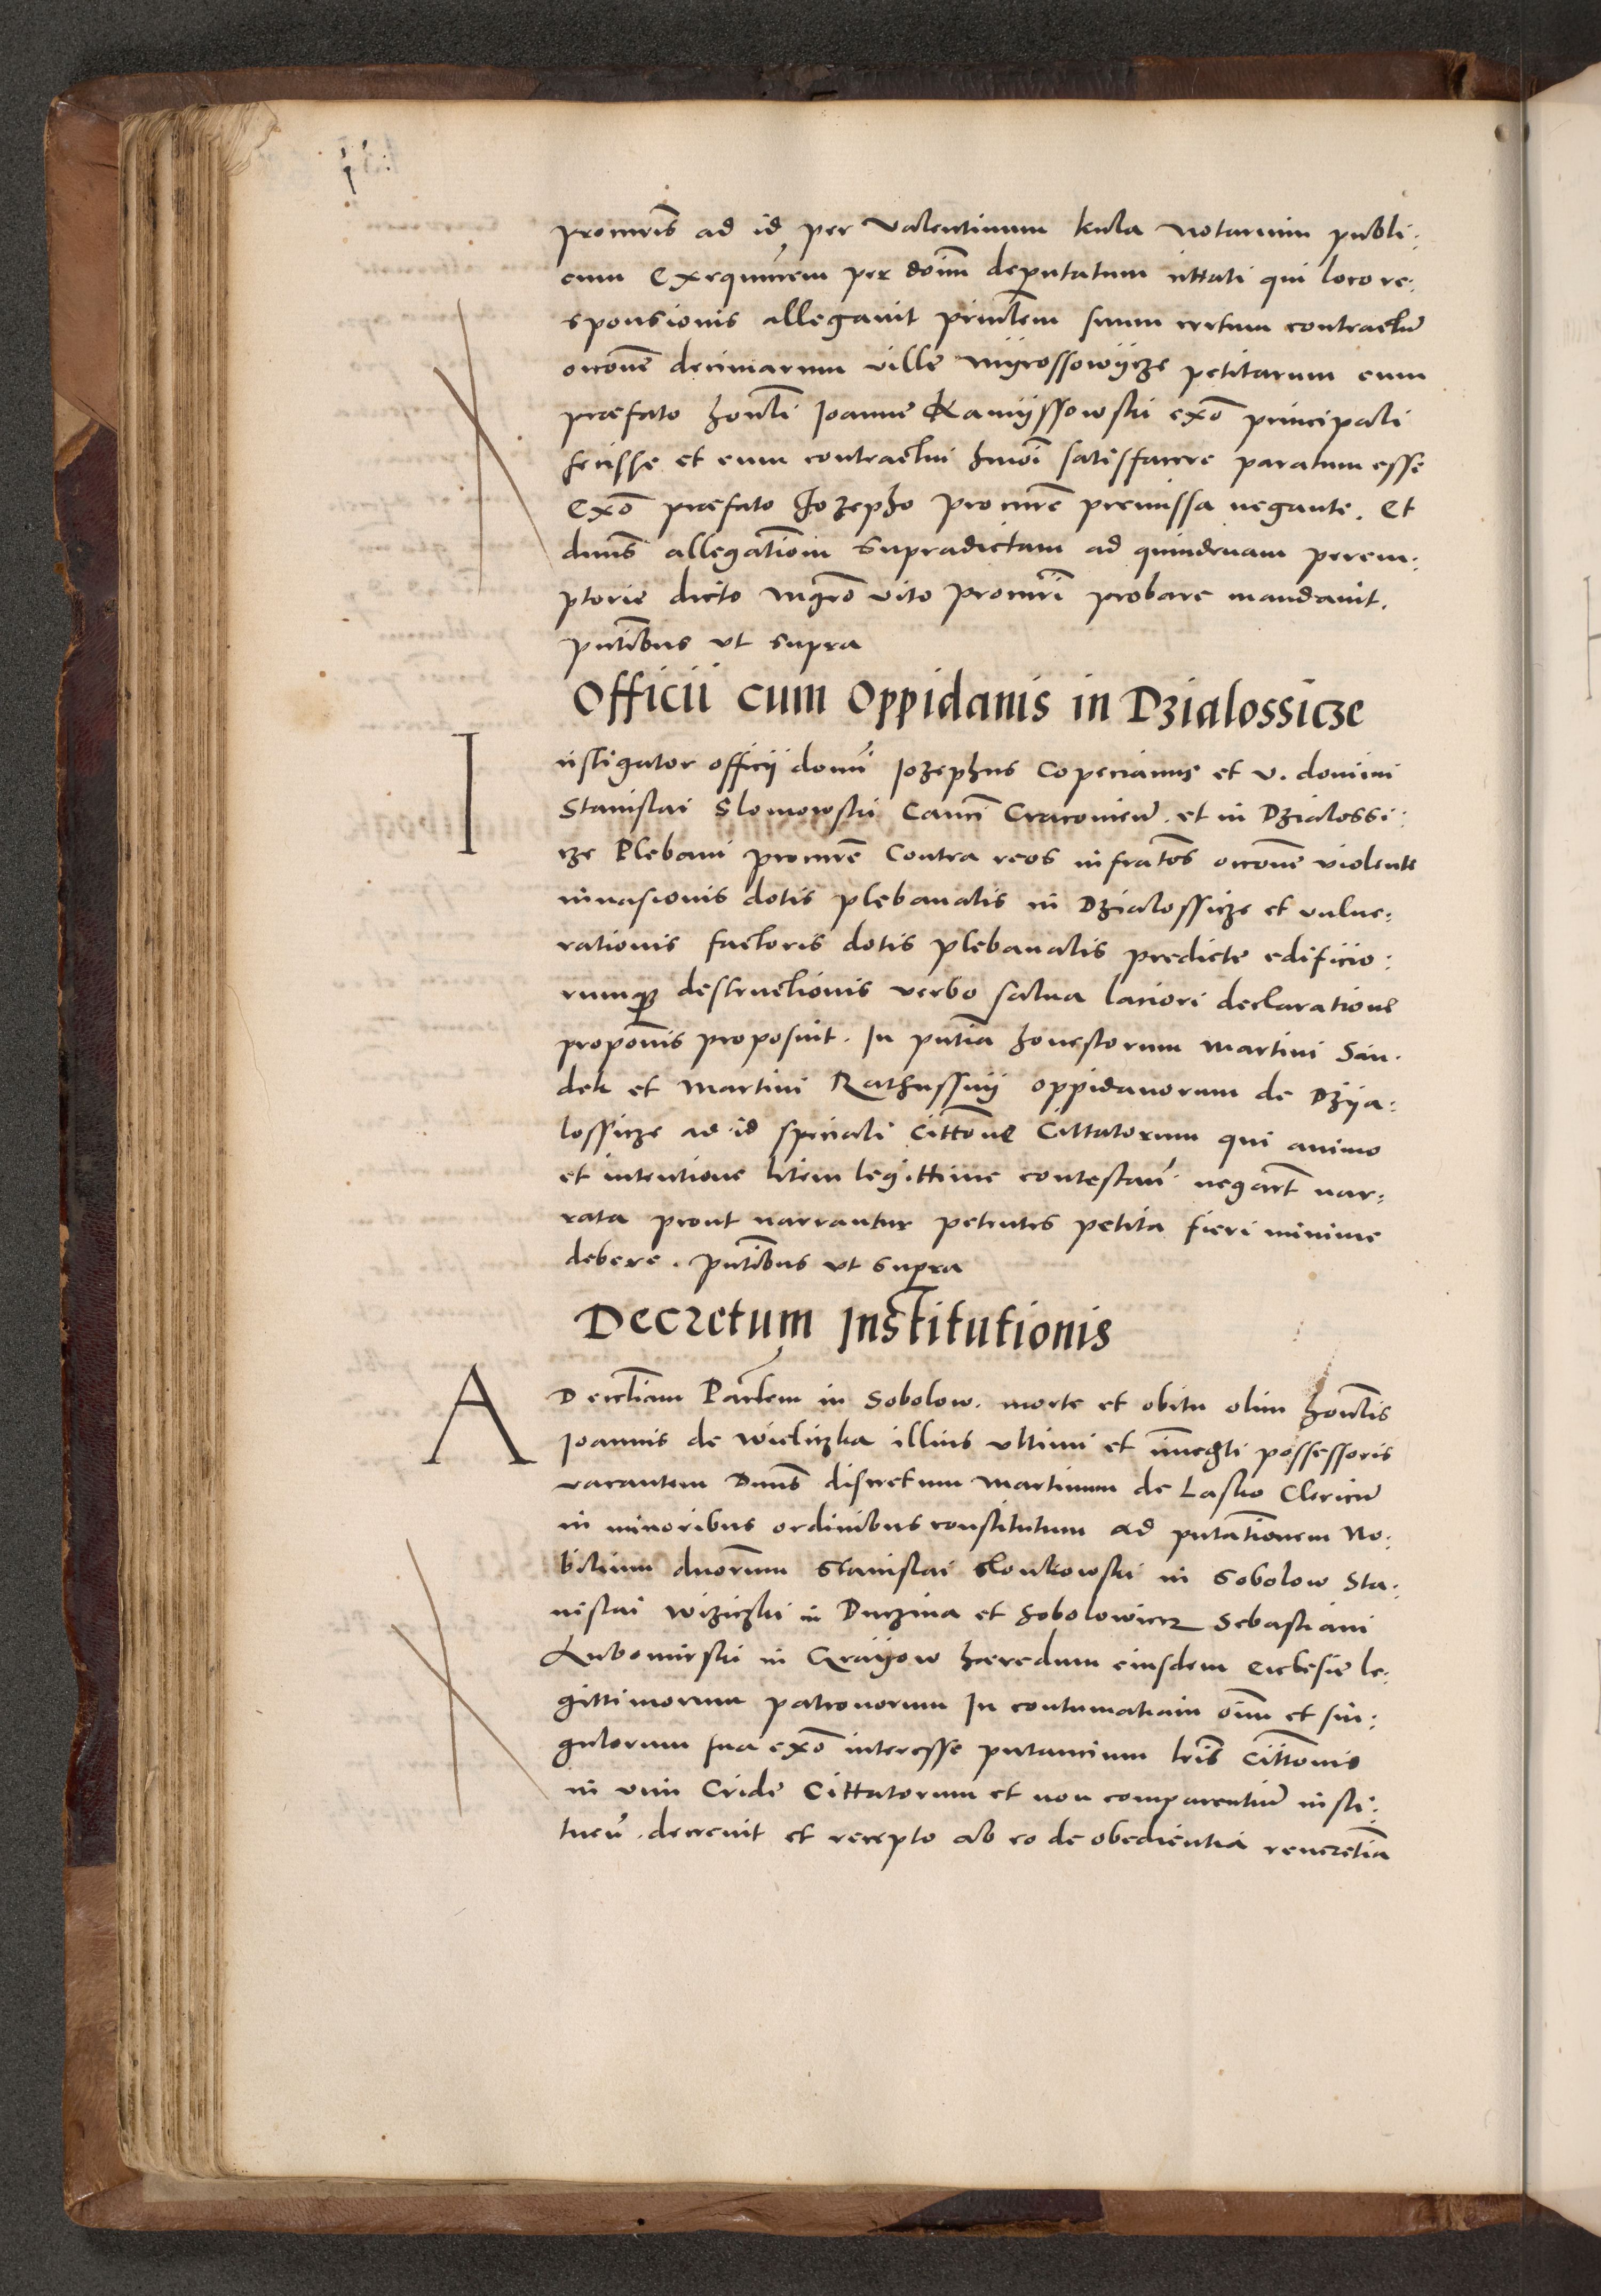 procuris ad id per Valentinum kula Notarium publi:
cum Exequutrem per dominum deputatum cittati qui loco re:
sponsionis allegavit principlem suum certum contractū
occone decimarum ville Mijrossowijcze petitarum cum
præfato honli Joanne Kamijssowski exō principali
fecisse et eum contractui hmōi satisfacere paratum esse
Exō præfato Jozepho procurē premissa negante. Et
dnus allegationem supradictam ad quindenam perem:
ptorie dicto Mgro Vito Procuri probare mandavit.
pntibus vt supra
Officii cum Oppidanis in Dzialossicze
Instigator officij domī Jozephus Copecianus et v. domini
Stanislai Slomowski Canci Cracovien. et in Dzialossi:
cze Plebani procurē Contra reos infratos occone violente
invasionis dotis plebanalis in Dzialossicze et vulne:
rationis factoris dotis plebanalis predicte edificio:
rumq̃ destructionis verbo salva laciori declaratione
proponis proposuit. In pntia honestorum Martini San.
dek et Martini Rathussnij oppidanorum de Dzija:
lossicze ad id speciali Cittone Cittatorum qui animo
et intentione litem legittime contestan̄ negarūt nar:
rata prout narrantur petentes petita fieri minime
debere. pntibus vt supra
Decretum Institutionis
AD ecclīam Parlem in Sobolow. morte et obitu olim honlis
Joannis de Wieliczka illius vltimi et immegti possessoris
vacantem Dnus discretum Martinum de Lasko Clericū
in minoribus ordinibus constitutum ad pntationem No:
bilium dnorum Stanislai Slonkowski in Sobolow Sta:
nislai Wiziczki in Buczina et Sobolowiecz Sebastiani
Lubomirski in Grajow hæredum eiusdem Ecclesie le:
gittimorum patronorum In contumatiam oīm et sin:
gulorum sua exō interesse putancium lris Cittonis
in vim Cride Cittatorum et non comparentiū insti:
tuen̄. decrevit et recepto ab eo de obedientia reverētia